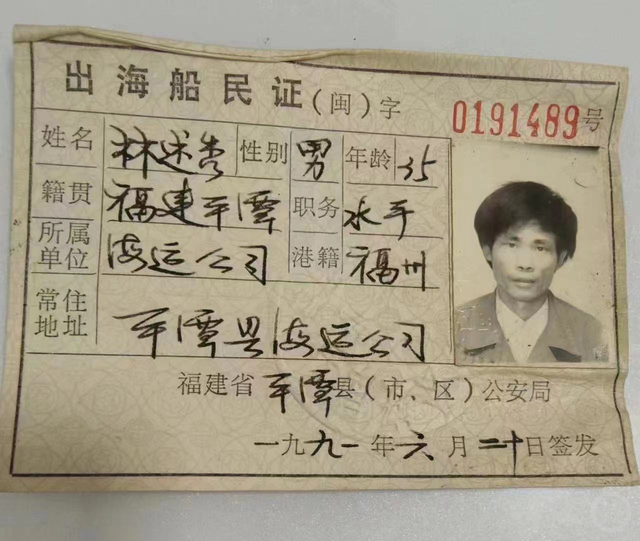 出海船民证(闽)字 0191489号
姓名 林述 性别 男 年龄 35
籍贯 福建平潭 职务 水手
所属单位 海运公司 港籍 福州
常住地址 平潭县海运公司
福建省平潭县(市、区)公安局
一九九一年六月二十日签发